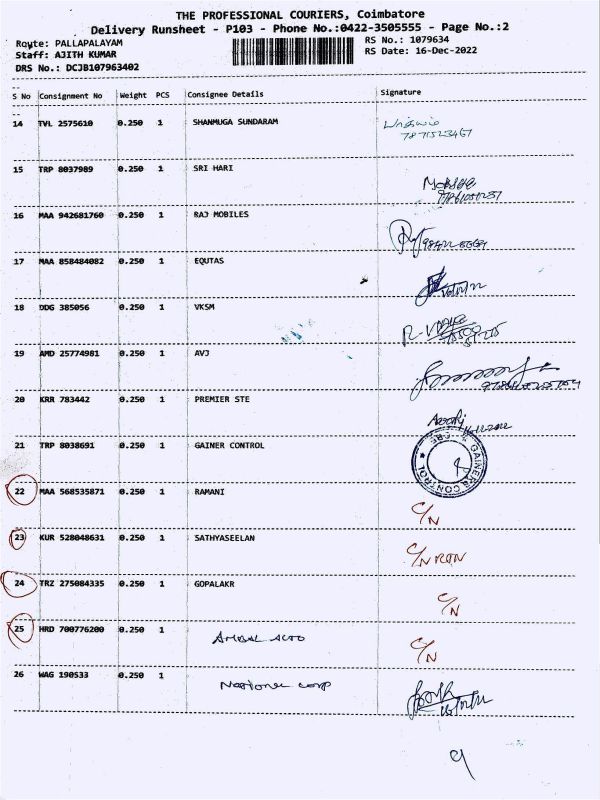 THE PROFESSIONAL COURIERS, Coimbatore
Delivery Runsheet - P103 - Phone No.:0422-3505555 - Page No.:2
Route: PALLAPALAYAM RS No.: 1079634
Staff: AJITH KUMAR RS Date: 16-Dec-2022
DRS No.: DCJB107963402
S No Consignment No Weight PCS Consignee Details Signature
14 TVL 2575610 0.250 1 SHANMUGA SUNDARAM
7871523467
15 TRP 8037989 0.250 1 SRI HARI
16 MAA 942681760 0.250 1 RAJ MOBILES
17 MAA 858484082 0.250 1 EQUTAS
18 DDG 385056 0.250 1 VKSM
19 AMD 25774981 0.250 1 AVJ
20 KRR 783442 0.250 1 PREMIER STE
21 TRP 8038691 0.250 1 GAINER CONTROL
GAINERS CONTROL CBE
22 MAA 568535871 0.250 1 RAMANI
C/N
23 KUR 528048631 0.250 1 SATHYASEELAN
C/N RTN
24 TRZ 275084335 0.250 1 GOPALAKR
C/N
25 HRD 700776200 0.250 1 AMBAL AUTO
C/N
26 WAG 190533 0.250 1 National corp